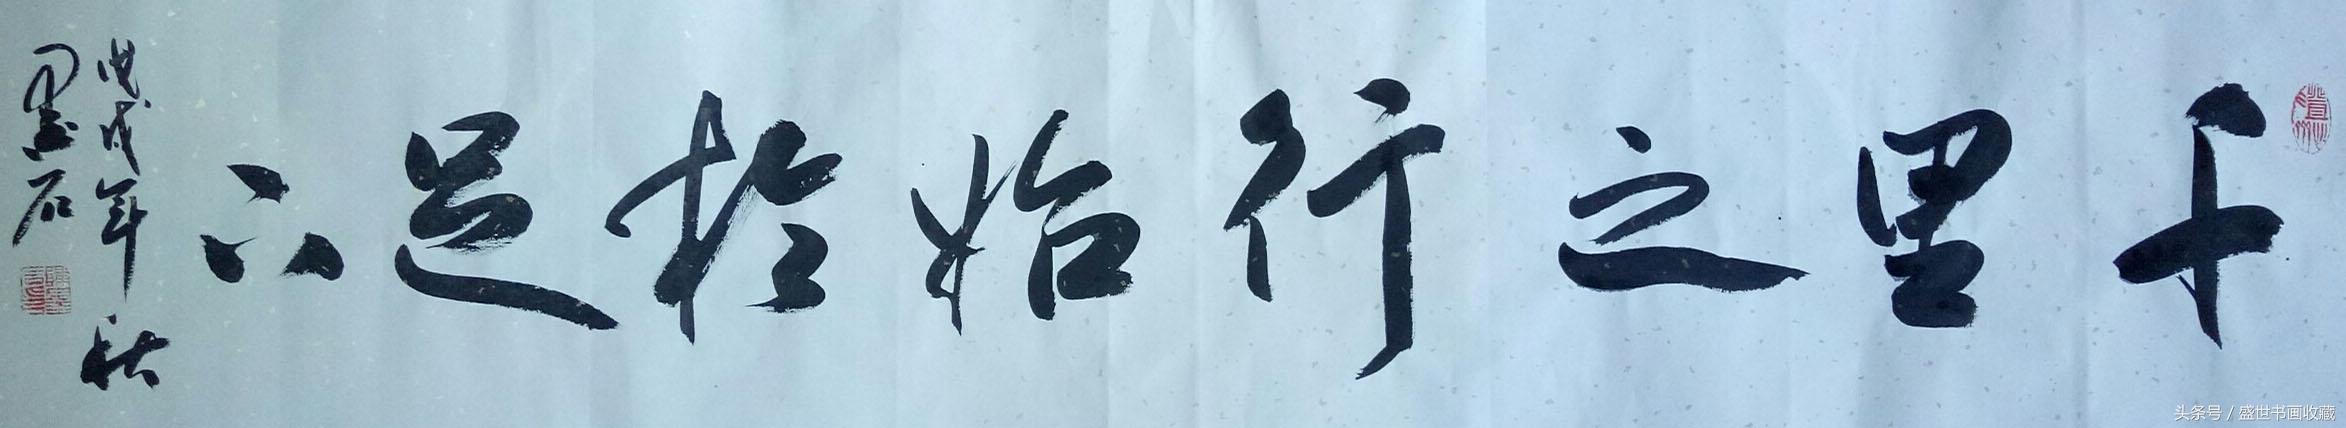 千里之行始於足下
戊戌年秋
墨石
头条号 / 盛世书画收藏